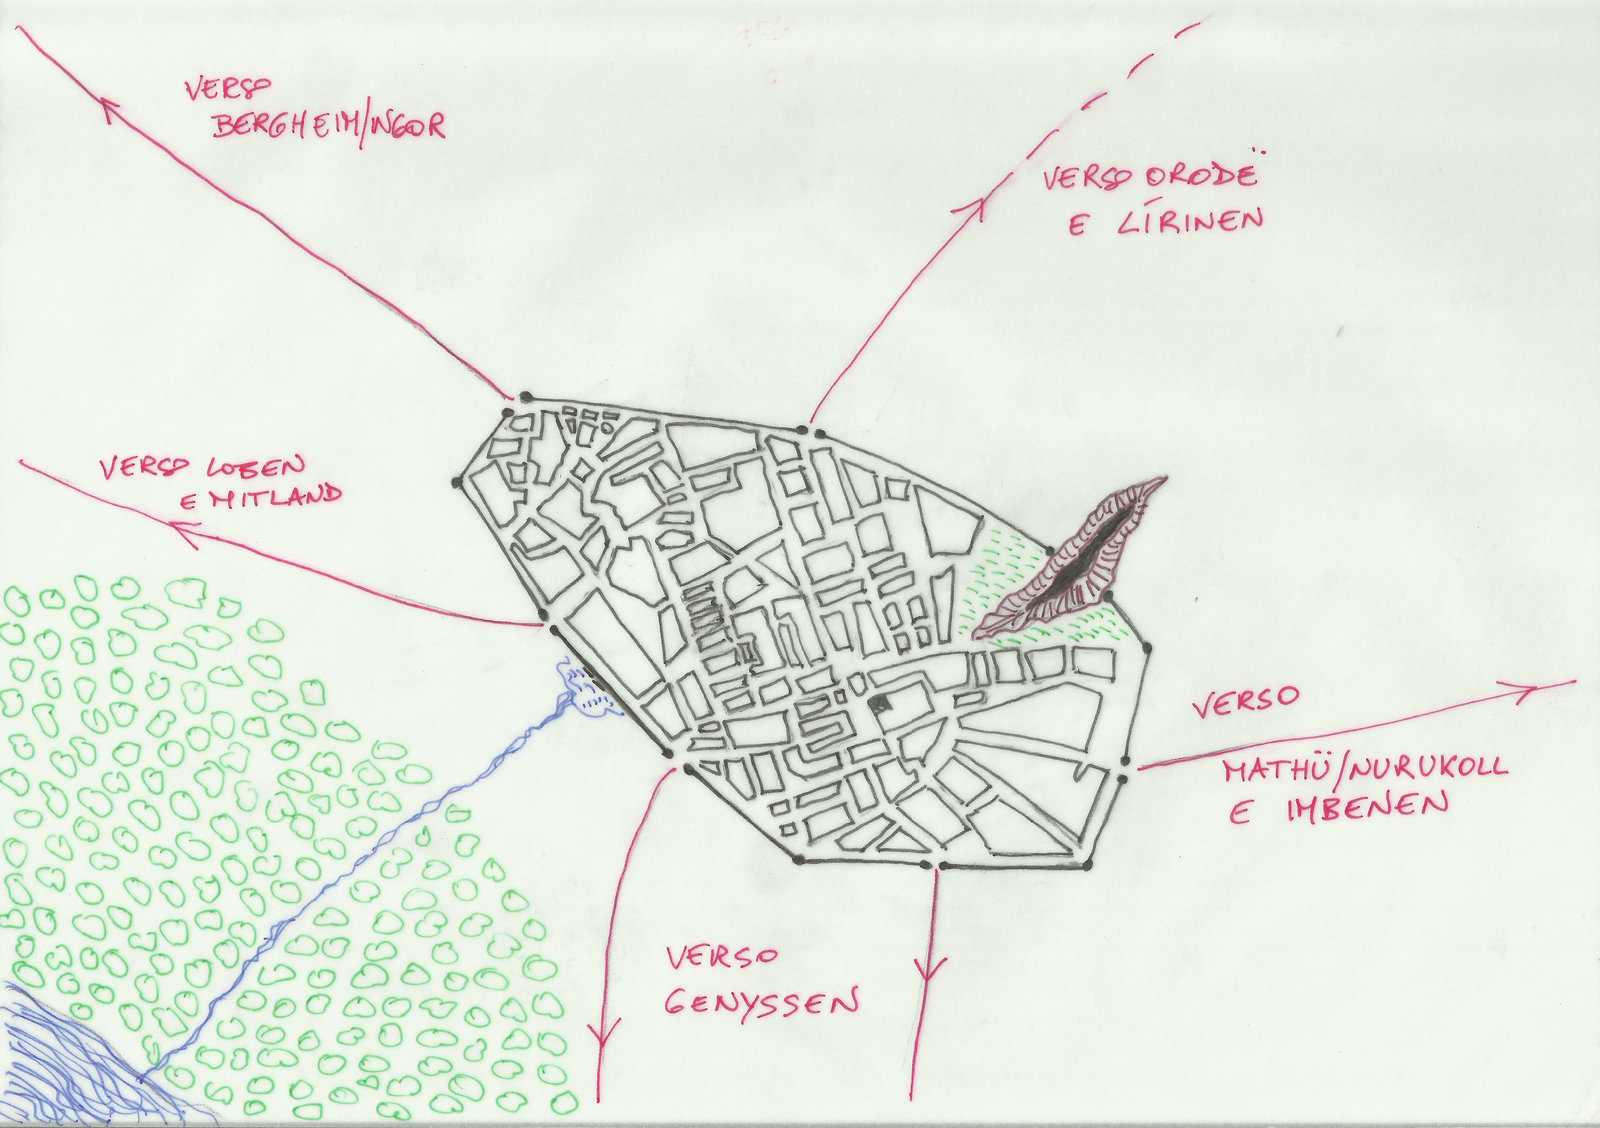 VERSO
BERGHEIM/INGOR
VERSO ORODË
E LÍRINEN
VERSO LOBEN
E MITLAND
VERSO
MATHÜ/NURUKOLL
E IMBENEN
VERSO
GENYSSEN